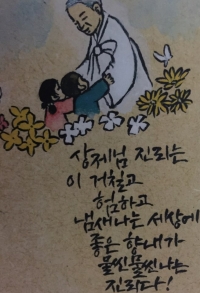 상제님 진리는
이 거칠고
험하고
냄새나는 세상에
좋은 향내가
물씬물씬나는
진리다!